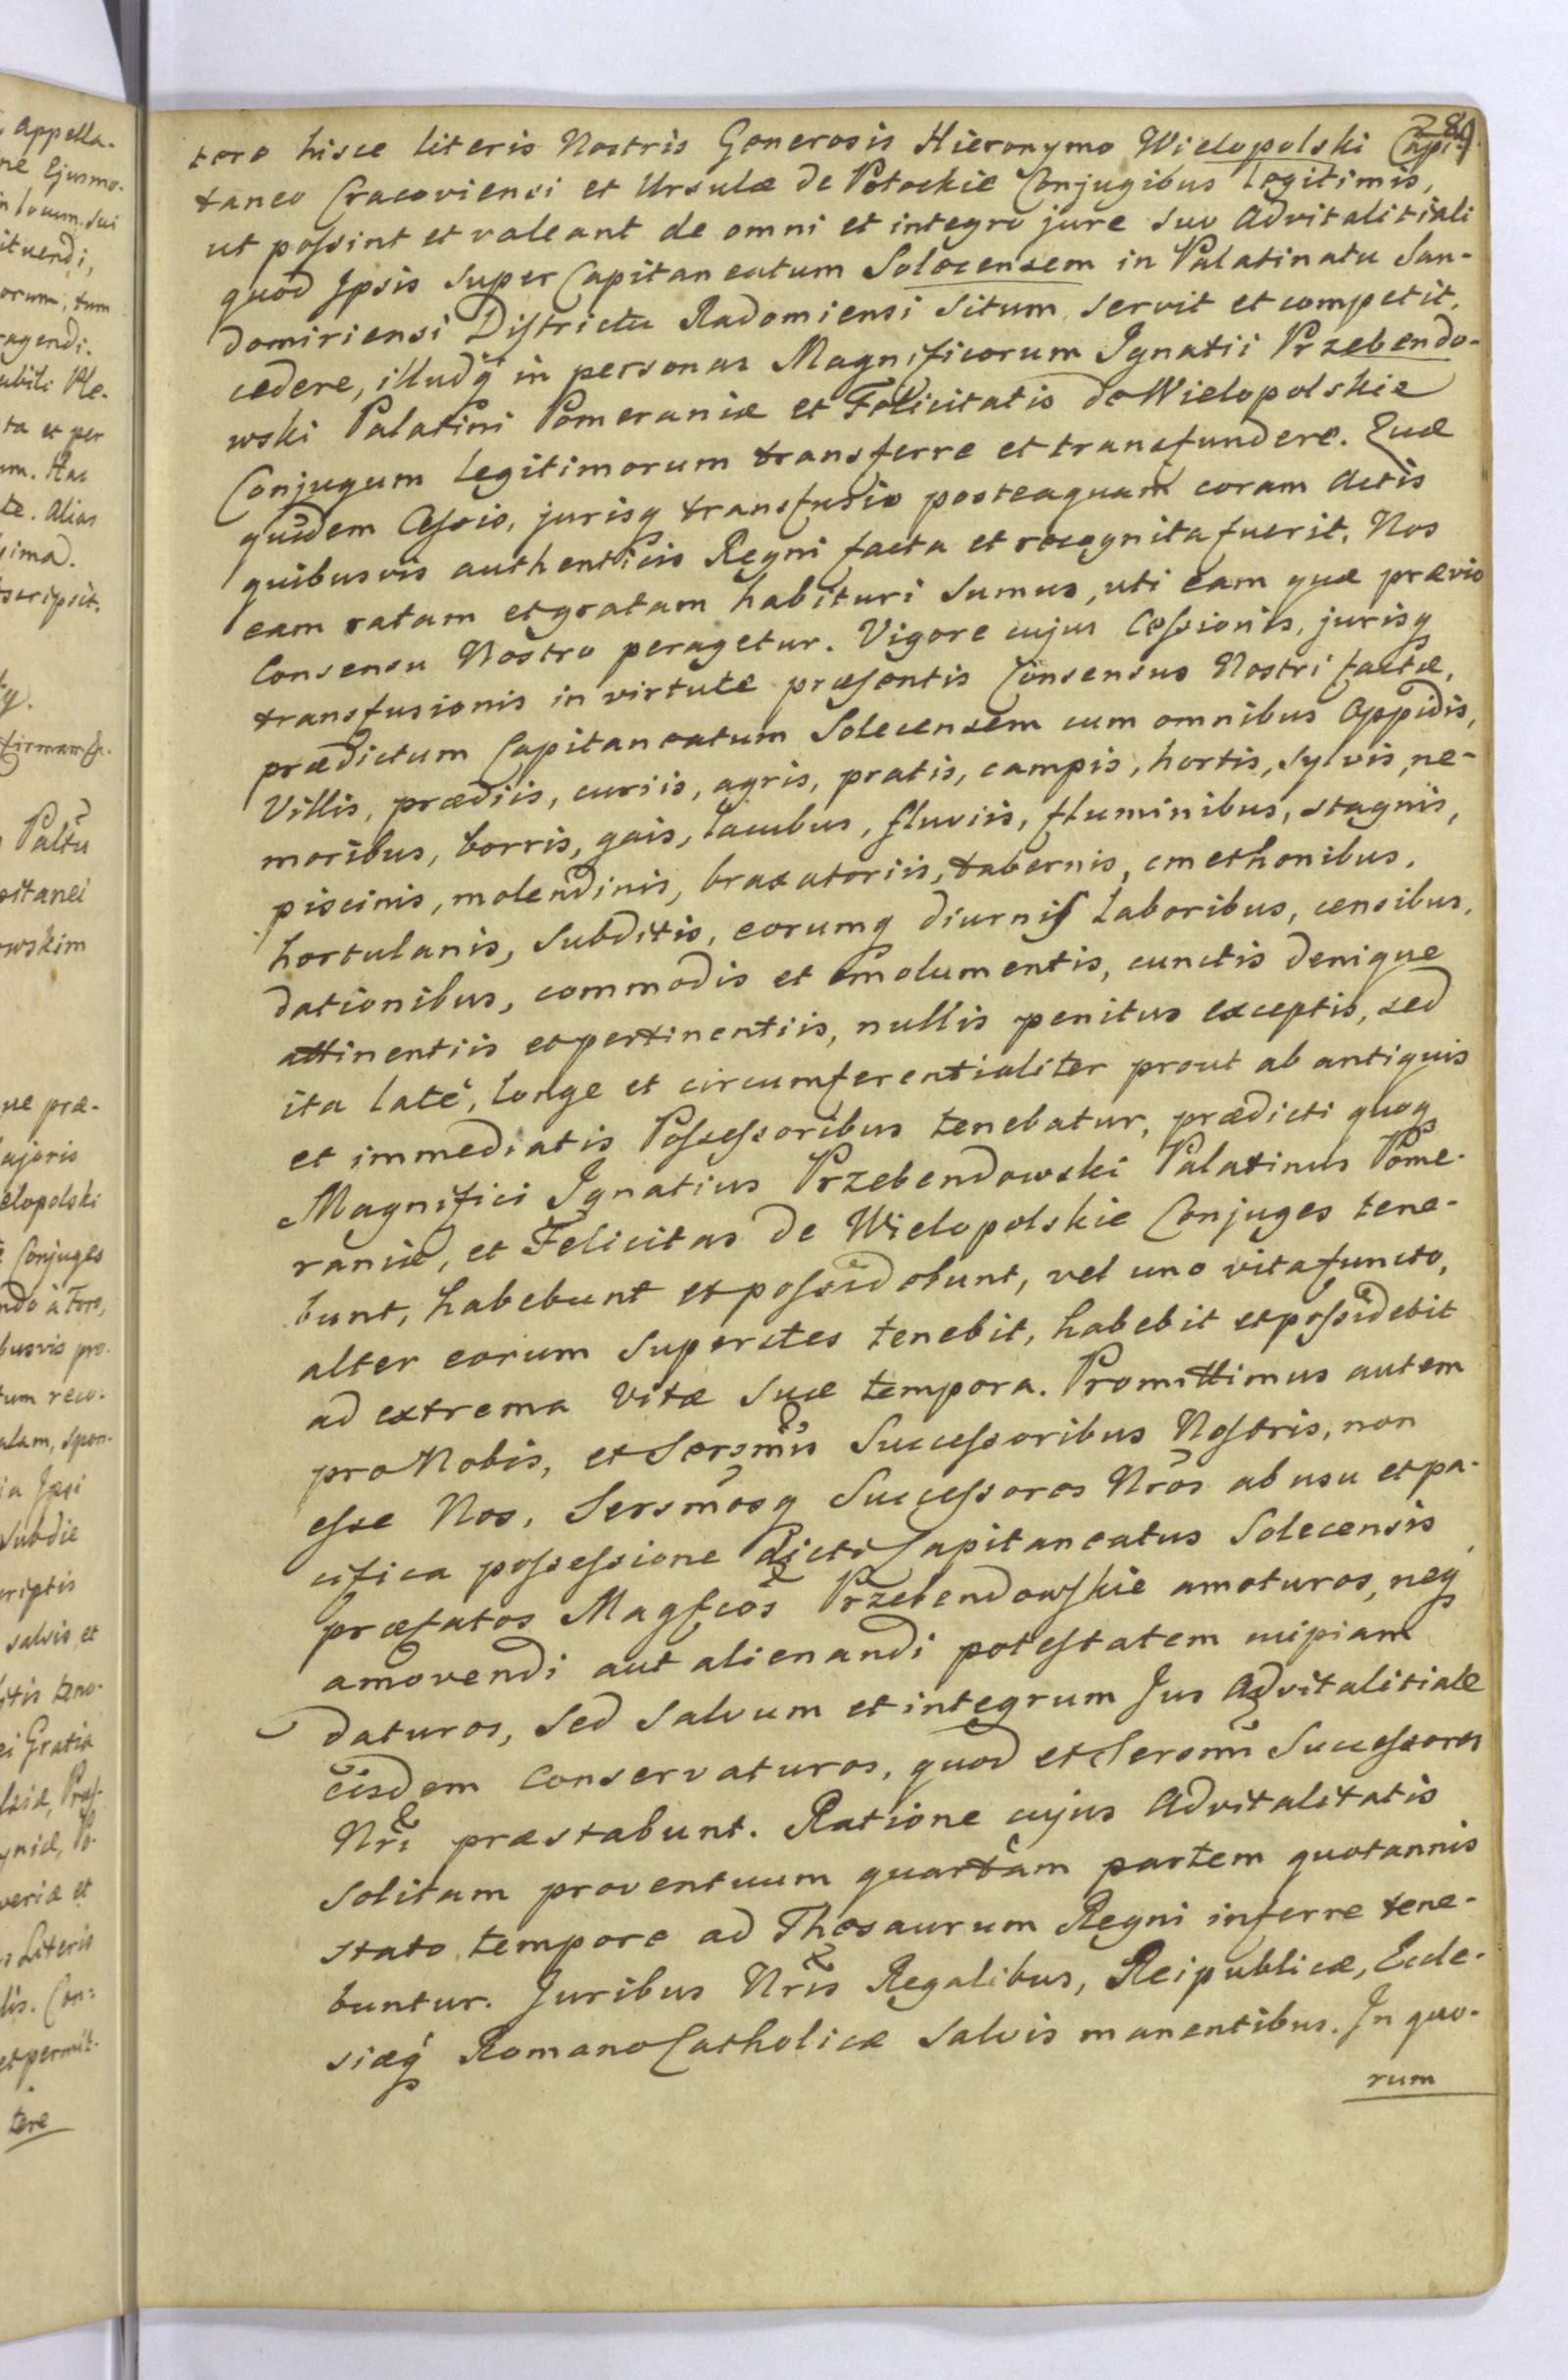 289
tere hisce literis Nostris Generosis Hieronymo Wielopolski Capi-
taneo Cracoviensi et Ursulæ de Potockie Conjugibus legitimis,
ut possint et valeant de omni et integro jure suo Advitalitiali
quod Ipsis super Capitaneatum Solecensem in Palatinatu San-
domiriensi Districtu Radomiensi situm servit et competit,
cedere, illudq́ in personas Magnificorum Ignatii Przebendo-
wski Palatini Pomeraniæ et Felicitatis de Wielopolskie
Conjugum legitimorum transferre et transfundere. Quæ
quidem Cessio, jurisq transfusio posteaquam coram Actis
quibusvis authenticis Regni facta et recognita fuerit, Nos
eam ratam et gratam habituri sumus, uti eam quæ prævio
Consensu Nostro peragetur. Vigore cujus Cessionis, jurisq
transfusionis in virtute præsentis Consensus Nostri factæ,
prædictum Capitaneatum Solecensem cum omnibus Oppidis,
Villis, prædiis, curiis, agris, pratis, campis, hortis, sylvis, ne-
moribus, borris, gais, lacubus, fluviis, fluminibus, stagnis,
piscinis, molendinis, braxatoriis, tabernis, cmethonibus,
hortulanis, subditis, eorumq diurnis laboribus, censibus,
dationibus, commodis et emolumentis, cunctis denique
attinentiis et pertinentiis, nullis penitus exceptis, sed
ita latè, longe et circumferentialiter prout ab antiquis
et immediatis Possessoribus tenebatur, prædicti quoq
Magnifici Ignatius Przebendowski Palatinus Pome-
raniæ, et Felicitas de Wielopolskie Conjuges tene-
bunt, habebunt et possidebunt, vel uno vita functo,
alter eorum superstes tenebit, habebit et possidebit
ad extrema vitæ suæ tempora. Promittimus autem
pro Nobis, et Serſmĩs Successoribus Nostris, non
esse Nos, Sersmõsq Successores Nrõs ab usu et pa-
cifica possessione dicti Capitaneatus Solecensis
præfatos Magfcõs Przebendowskie amoturos, neq
amovendi aut alienandi potestatem cuipiam
daturos, sed salvum et integrum Jus Advitalitiale
eisdem conservaturos, quod et Sersmĩ Successores
Nrĩ præstabunt. Ratione cujus Advitalitatis
solitam proventuum quartam partem quotannis
stato tempore ad Thesaurum Regni inferre tene-
buntur. Juribus Nrĩs Regalibus, Reipublicæ, Eccle-
siæq́ Romano Catholicæ salvis manentibus. In quo-
rum
appella-
ne Ejusmo-
in locum sui
ituendi,
orum, tum
ragendi.
abili Ple-
ta et per
um. Hac
te. Alias
sima.
scripsit.
Paltũ
pitanei
owskim
ue præ-
ajoris
elopolski
Conjuges
ndo à Foro,
busvis pro-
tum reco-
alam, spon-
ia Ipsi
Subdie
criptis
salvis et
itis teno-
ei Gratia
veriæ et
Literis
lis. Con-
et permit-
tere